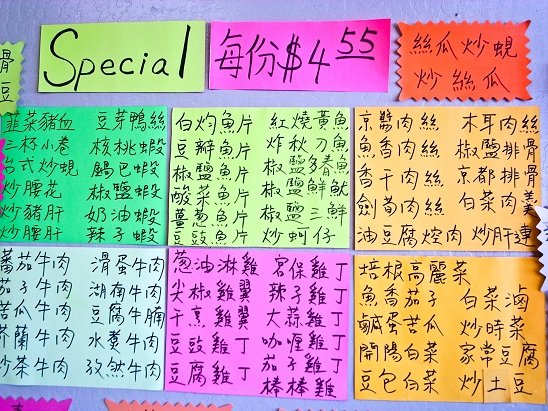 Special
每份$4.55
絲瓜炒蜆
炒絲瓜
骨
豆
韮菜豬血 豆芽鴨絲
三杯小卷 核桃蝦
台式炒蜆 鍋巴蝦
炒腰花 椒鹽蝦
炒豬肝 奶油蝦
炒腰肝 辣子蝦
白灼魚片 紅燒黃魚
豆瓣魚片 炸秋刀魚
椒鹽魚片 椒鹽多春魚
酸菜魚片 椒鹽鮮魷
薑蔥魚片 椒鹽三鮮
豆豉魚片 炒蚵仔
京醬肉絲 木耳肉絲
魚香肉絲 椒鹽排骨
香干肉絲 京都排骨
劍筍肉絲 白菜肉羹
油豆腐焢肉 炒肝連
蕃茄牛肉 滑蛋牛肉
茄子牛肉 湖南牛肉
苦瓜牛肉 豆腐牛腩
芥蘭牛肉 水煮牛肉
沙茶牛肉 孜然牛肉
蔥油淋雞 宮保雞丁
尖椒雞翼 辣子雞丁
干烹雞翼 大蒜雞丁
豆豉雞丁 咖喱雞丁
豆腐雞丁 茄子雞丁
棒棒雞
培根高麗菜
魚香茄子 白菜滷
鹹蛋苦瓜 炒時菜
開陽白菜 家常豆腐
豆包白菜 炒土豆